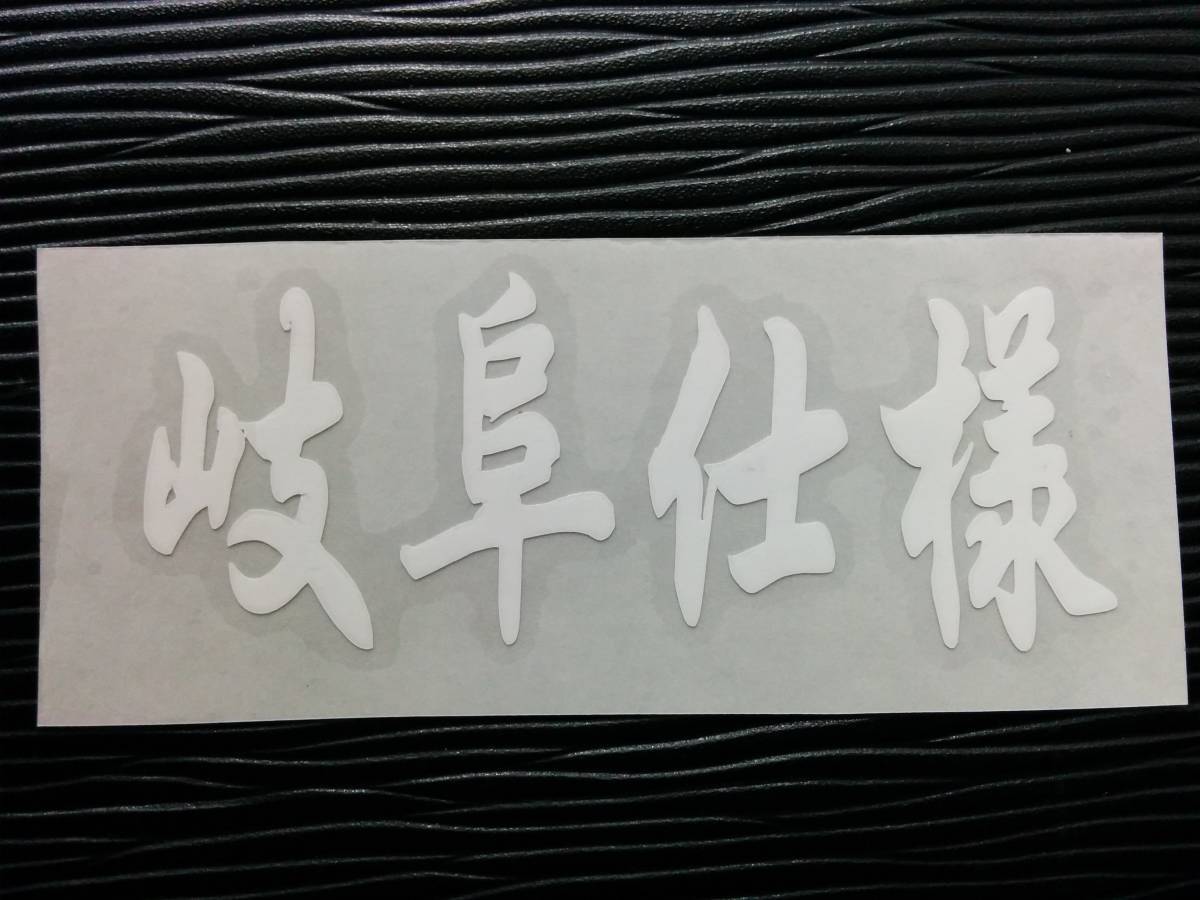 岐阜仕様